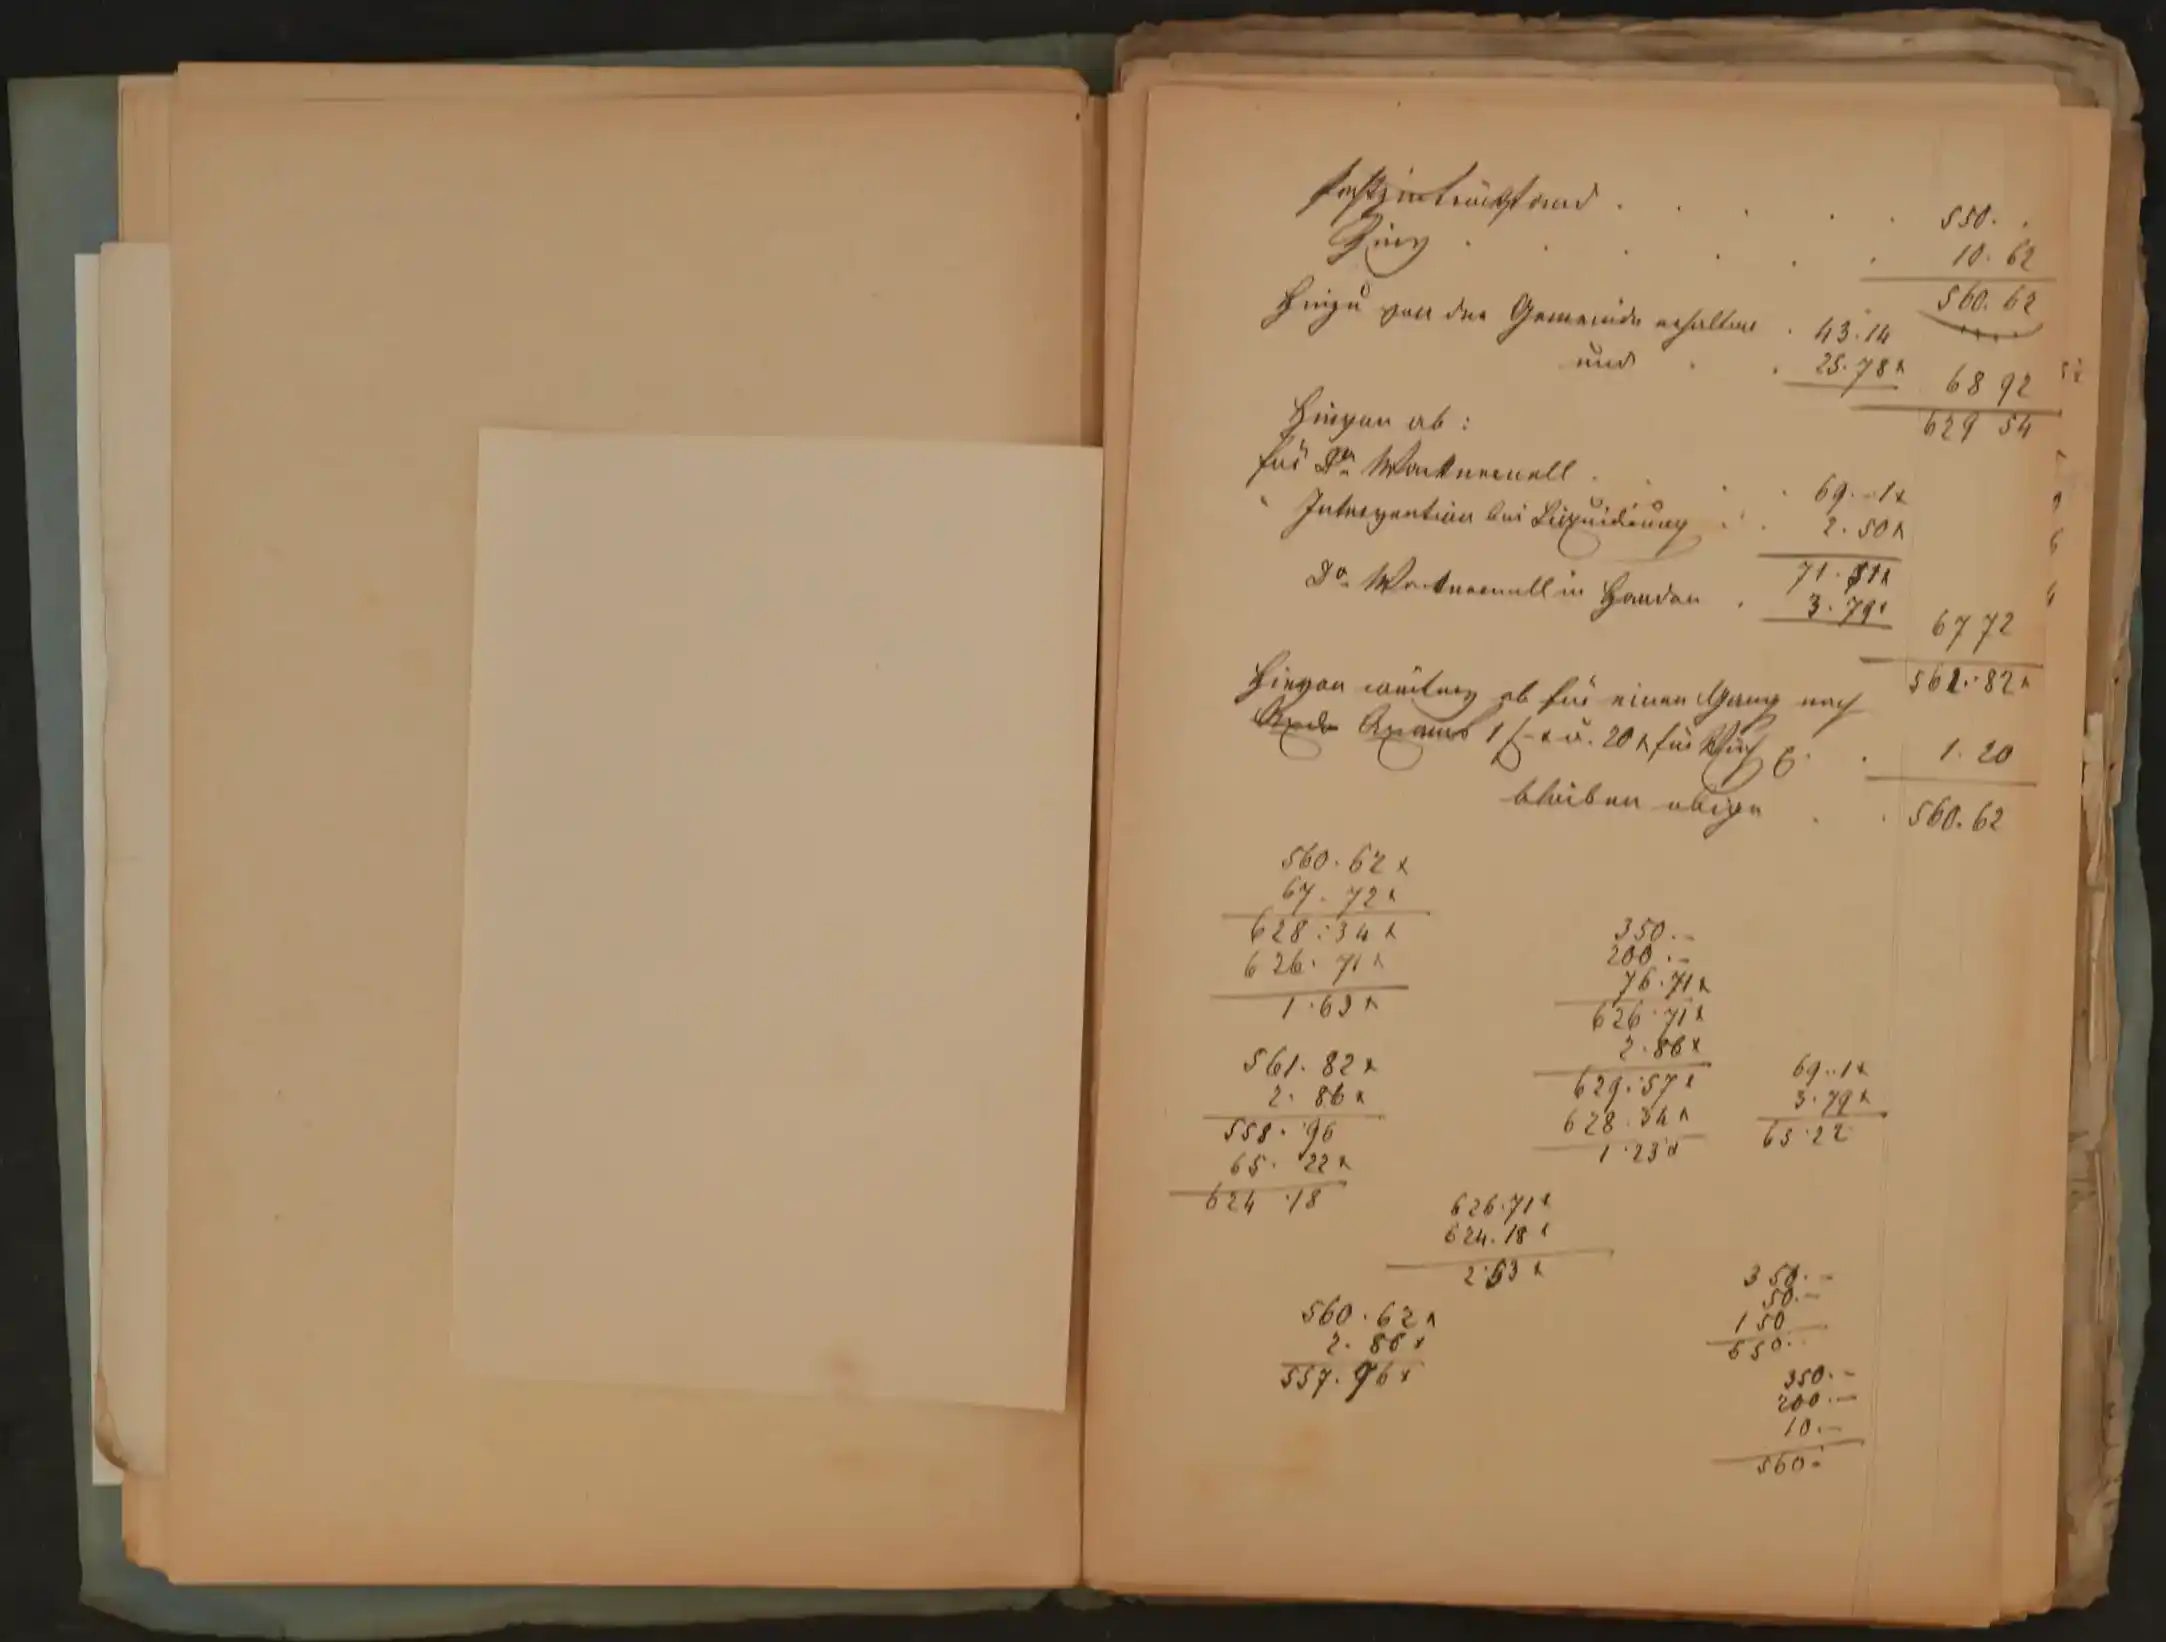 550.
Zins 10. 62
560. 62
Hinzu von der Gemeinde erhalten 43.14
und 25.78x 68 92
629 54
Hievon ab:
für Do 69.-1x
" Intervention bei Liquidirung 2.50x
71.51x
Do in Handen 3.79x 67 72
561.82x
Hievon weiters ab für einen Gang nach
1 f - x u. 20x für 1. 20
bleiben obige 560.62
560.62x
67. 72x
628.34x
626. 71x
1.63x
350.-
200.-
76.71x
626.71x
2.86x
629.57x
628.34x
1.23x
561. 82x
2. 86x
558. 96
65. 22x
624.18
69.-1x
3.79x
65.22
626.71x
624.18x
2.53x
560.62x
2. 86x
557.76x
350.-
50.-
150
550.-
350.-
200.-
10.-
560.-